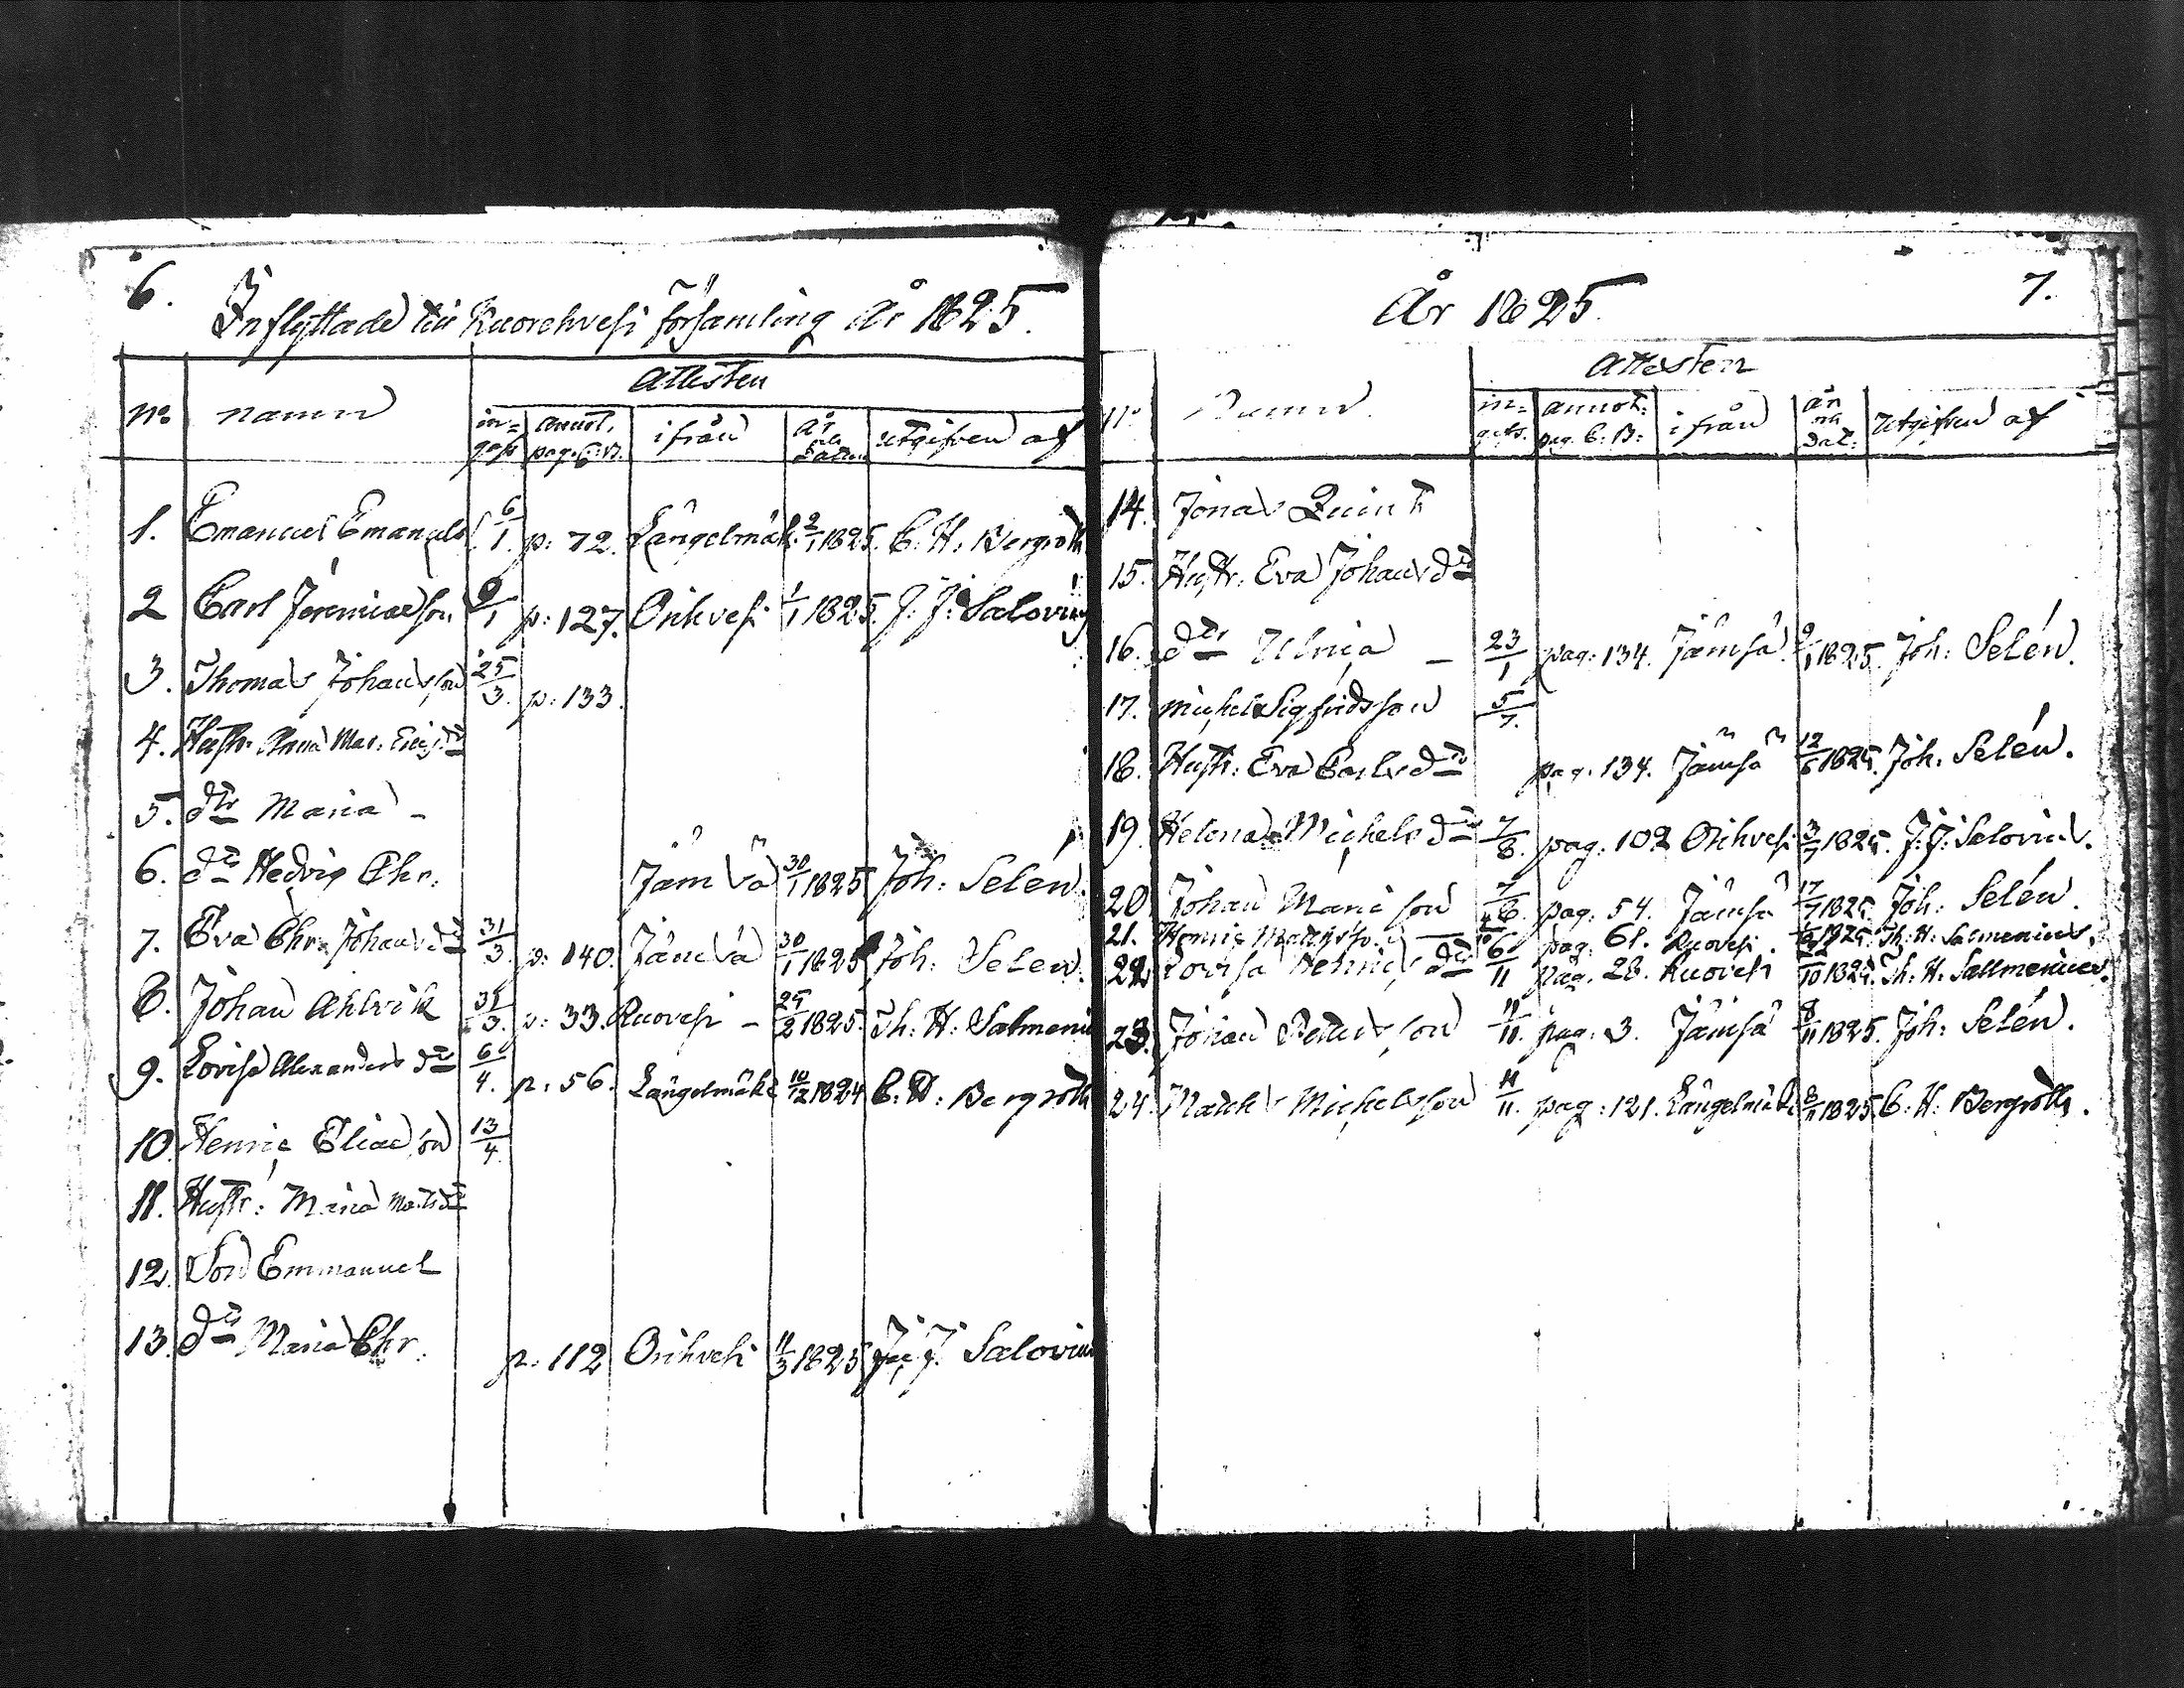 6.
Inflyttade till Kuorehvesi församling år 1825.
Attesten
No Namn in= annot. ifrån År utgifven af
gafs pag. C.B. och datum
1. Emanuel Emanuels. 6/1. p: 72. Längelmäk. 2/1 1825. C. H: Bergroth
2 Carl Jeremiæson 9/1 p: 127. Orihvesi 1/1 1825. J: J: Salovius
3. Thomas Johansson 25/3. p: 133.
4. Hustr. Anna Mar. Ericsdr
5. dtr Maria -
6. dtr Hedvig Chr. Jämsä 30/1 1825 Joh: Selén.
7. Eva Chr. Johansdr 31/3. p: 140. Jämsä 30/1 1825 Joh: Selén.
8. Johan Ahlvik 31/3. p: 33. Ruovesi - 25/2 1825. Th. H: Salmeniu
9. Lovisa Alexandersdr 6/4. p: 56. Längelmäki 10/12 1824 C. H: Bergroth
10. Henric Eliæson 13/4.
11. Hustr: Maria Matsdr
12. Son Emmanuel
13. dtr Maria Chr. p: 112 Orihvesi 11/3 1825 J: J. Salovius
År 1825.
7.
Attesten
No Namn. in= annot: ifrån år utgifven af
gafs. pag. C: B: och dat:
14. Jonas Quint
15. Hustr. Eva Johansdr
16. dtr Ulrica - 23/1 pag: 134. Jämsä 9/1 1825. Joh: Selén.
17. Michel Sigfridsson 5/7.
18. Hustr: Eva Carlsdr pag. 134. Jämsä 12/6 1825. Joh. Selén.
19. Helena Michelsdr 7/8. pag: 102 Orihvesi 3/7 1825. J: J: Salovius.
20. Johan Mariæson 7/8. pag: 54. Jämsä 17/7 1825. Joh: Selén.
21. Henric Mattsson pag: 61. Ruovesi. 1825. Th: H: Salmenius.
22. Lovisa Henricsdr 6/11 pag. 28. Ruovesi /10 1825. Th. H: Sallmenius.
23. Johan Petersson 11/11. pag: 3. Jämsä 8/11 1825. Joh: Selén.
24. Matths Michelsson 11/11. pag: 121. Längelmäki 8/11 1825 C: H: Bergroth.